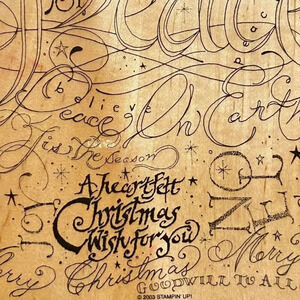 Peace
believe
Peace On Earth
Tis the Season
JOY
NOEL
A heartfelt
Christmas
Wish for you
Merry
Merry Christmas
Christmas
GOODWILL TO ALL
© 2003 STAMPIN' UP!